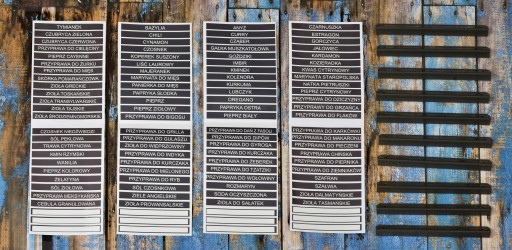 TYMIANEK
CZUBRYCA ZIELONA
CZUBRYCA CZERWONA
PRZYPRAWA DO CIELĘCINY
PIEPRZ CAYENNE
PRZYPRAWA DO ŻURKU
PRZYPRAWA DO MIĘS
SKÓRKA POMARAŃCZOWA
ZIOŁA GRECKIE
ZIOŁA TOSKAŃSKIE
ZIOŁA TRANSYLWAŃSKIE
ZIOŁA WŁOSKIE
ZIOŁA ŚRÓDZIEMNOMORSKIE
CZOSNEK NIEDŹWIEDZI
SÓL PEKLOWA
TRAWA CYTRYNOWA
KMIN RZYMSKI
WANILIA
PIEPRZ KOLOROWY
ŻELATYNA
SÓL ZIOŁOWA
PRZYPRAWA MEKSYKAŃSKA
CEBULA GRANULOWANA
BAZYLIA
CHILI
CYNAMON
CZOSNEK
KOPEREK SUSZONY
LIŚĆ LAUROWY
MAJERANEK
MARYNATA DO MIĘS
PANIERKA DO MIĘS
PAPRYKA SŁODKA
PIEPRZ
PIEPRZ ZIOŁOWY
PRZYPRAWA DO BIGOSU
PRZYPRAWA DO GRILLA
PRZYPRAWA DO GULASZU
ZIOŁA DO WIEPRZOWINY
PRZYPRAWA DO INDYKA
PRZYPRAWA DO KACZKI
PRZYPRAWA DO MIELONEGO
PRZYPRAWA DO RYB
SÓL CZOSNKOWA
ZIELE ANGIELSKIE
ZIOŁA PROWANSALSKIE
ANYŻ
CURRY
CZĄBER
GAŁKA MUSZKATOŁOWA
GOŹDZIKI
IMBIR
KMINEK
KOLENDRA
KURKUMA
LUBCZYK
OREGANO
PAPRYKA OSTRA
PIEPRZ BIAŁY
PRZYPRAWA DO DAŃ Z FASOLI
PRZYPRAWA DO DIPÓW
PRZYPRAWA DO GYROSA
PRZYPRAWA DO KURCZAKA
PRZYPRAWA DO ŻEBEREK
PRZYPRAWA DO TZATZIKI
PRZYPRAWA DO WOŁOWINY
ROZMARYN
SODA OCZYSZCZONA
ZIOŁA DO SAŁATEK
CZARNUSZKA
ESTRAGON
GORCZYCA
JAŁOWIEC
KARDAMON
KOZIERADKA
KWAS CYTRYNOWY
MARYNATA STAROPOLSKA
NATKA PIETRUSZKI
PIEPRZ CYTRYNOWY
PRZYPRAWA DO DZICZYZNY
PRZYPRAWA DO GRZAŃCA
PRZYPRAWA DO FLAKÓW
PRZYPRAWA DO KARKÓWKI
PRZYPRAWA DO MAKARONU
PRZYPRAWA DO PIECZENI
PRZYPRAWA CHIŃSKA
PRZYPRAWA DO PIERNIKA
PRZYPRAWA DO ZIEMNIAKÓW
SZAFRAN
SZAŁWIA
ZIOŁA DALMATYŃSKIE
ZIOŁA TASMAŃSKIE